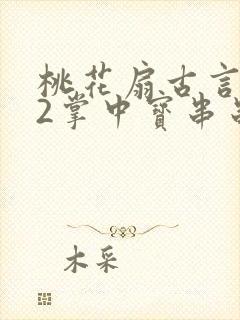 桃花扇古言
2掌中寳串
木采